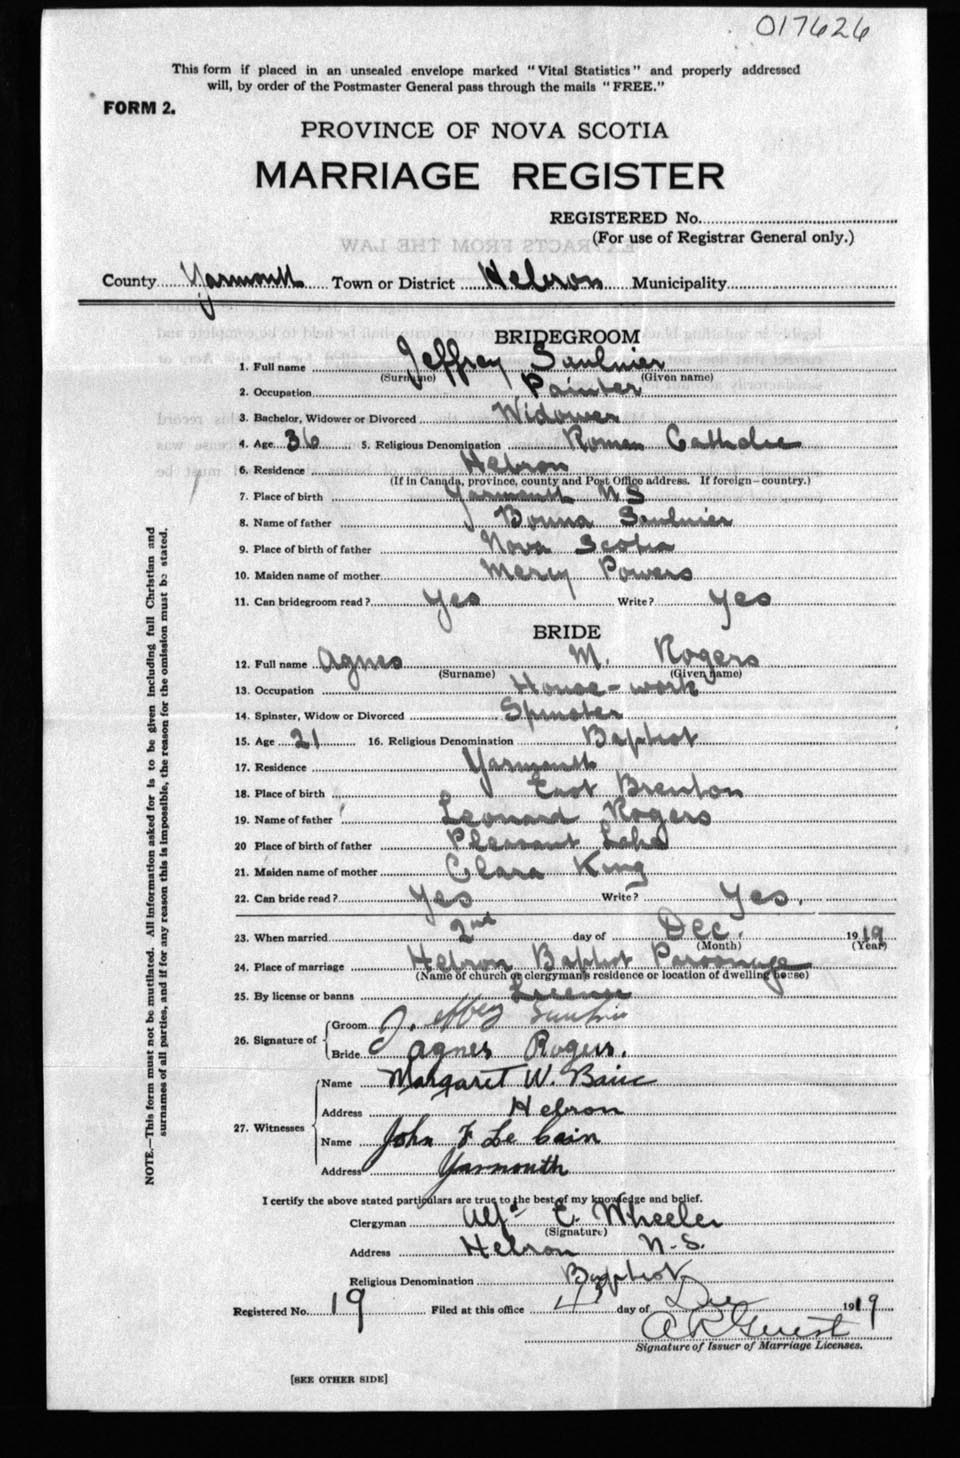 017626
This form if placed in an unsealed envelope marked "Vital Statistics" and properly addressed
will, by order of the Postmaster General pass through the mails "FREE."
FORM 2.
PROVINCE OF NOVA SCOTIA
MARRIAGE REGISTER
REGISTERED No.
(For use of Registrar General only.)
County Yarmouth Town or District Hebron Municipality
BRIDEGROOM
1. Full name Jeffrey Saulnier
(Surname) (Given name)
2. Occupation Painter
3. Bachelor, Widower or Divorced Widower
4. Age 36 5. Religious Denomination Roman Catholic
6. Residence Hebron
(If in Canada, province, county and Post Office address. If foreign—country.)
7. Place of birth Yarmouth N S
8. Name of father Saulnier
9. Place of birth of father Nova Scotia
10. Maiden name of mother Mercy Powers
11. Can bridegroom read? Yes Write? Yes
BRIDE
12. Full name Agnes M. Rogers
(Surname) (Given name)
13. Occupation House-work
14. Spinster, Widow or Divorced Spinster
15. Age 21 16. Religious Denomination Baptist
17. Residence Yarmouth
18. Place of birth East Brenton
19. Name of father Leonard Rogers
20 Place of birth of father Pleasant Lake
21. Maiden name of mother Clara King
22. Can bride read? Yes Write? Yes.
23. When married 2nd day of Dec. 1919
(Month) (Year)
24. Place of marriage Hebron Baptist Parsonage
(Name of church or clergyman's residence or location of dwelling house)
25. By license or banns License
26. Signature of Groom Jeffrey Saulnier
Bride Agnes Rogers.
27. Witnesses Name Margaret W.
Address Hebron
Name John F Le Cain
Address Yarmouth
I certify the above stated particulars are true to the best of my knowledge and belief.
Clergyman Alfd E. Wheeler
(Signature)
Address Hebron N.S.
Religious Denomination Baptist
Registered No. 19 Filed at this office 4 day of Dec 1919
A R Guest
Signature of Issuer of Marriage Licenses.
[SEE OTHER SIDE]
NOTE.—This form must not be mutilated. All information asked for is to be given including full Christian and
surnames of all parties, and if for any reason this is impossible, the reason for the omission must be stated.